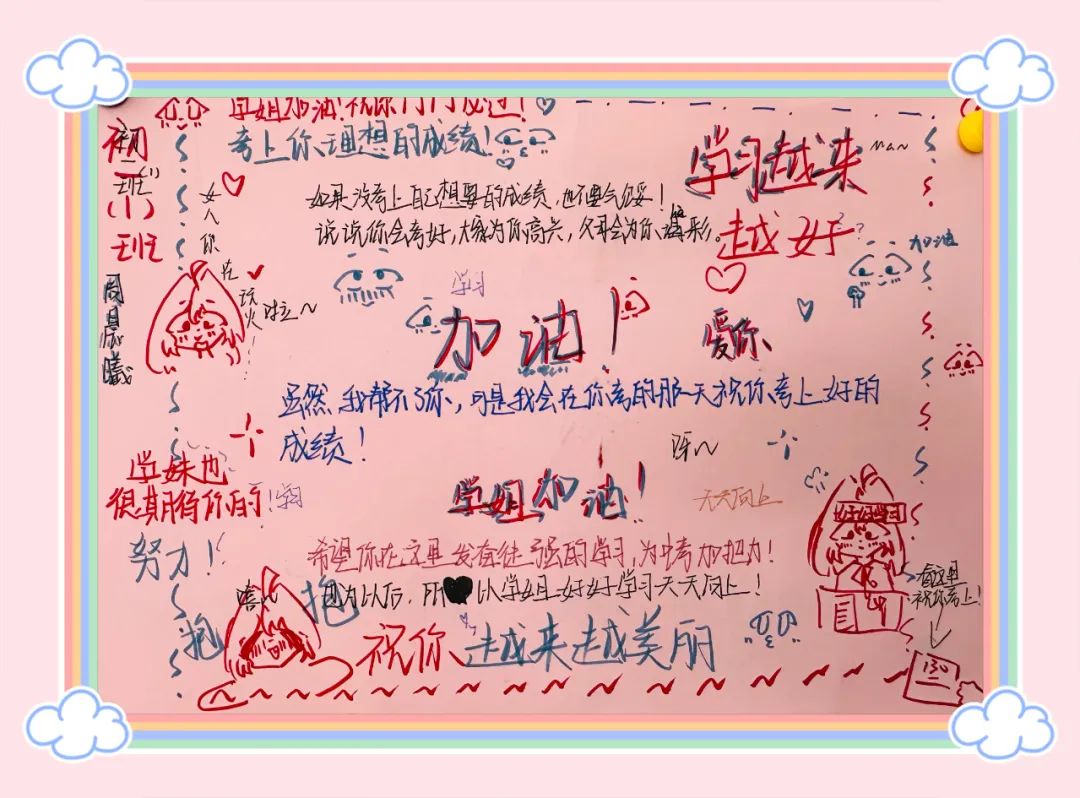 学姐加油!祝你门门及过!
考上你理想的成绩!
初
二
班
(1)
班
周晨曦
女人你在玩火啦~
如果没考上自己想要的成绩,也不要气馁!
说说你会考好,大家为你高兴,
学习越来
越好
man
加油
学习
加油!
爱你
虽然我帮不了你,可是我会在你考的那一天祝你考上好的
成绩!
呀~
学妹也
很期待你的!
学习
努力!
学姐加油!
天天向上
好好学习
希望你在这里发奋往强的学习,为中考加把力!
因为以后,所以学姐好好学习天天向上!
嘻
抱
抱
祝你越来越美丽
看这里
祝你考上!
130